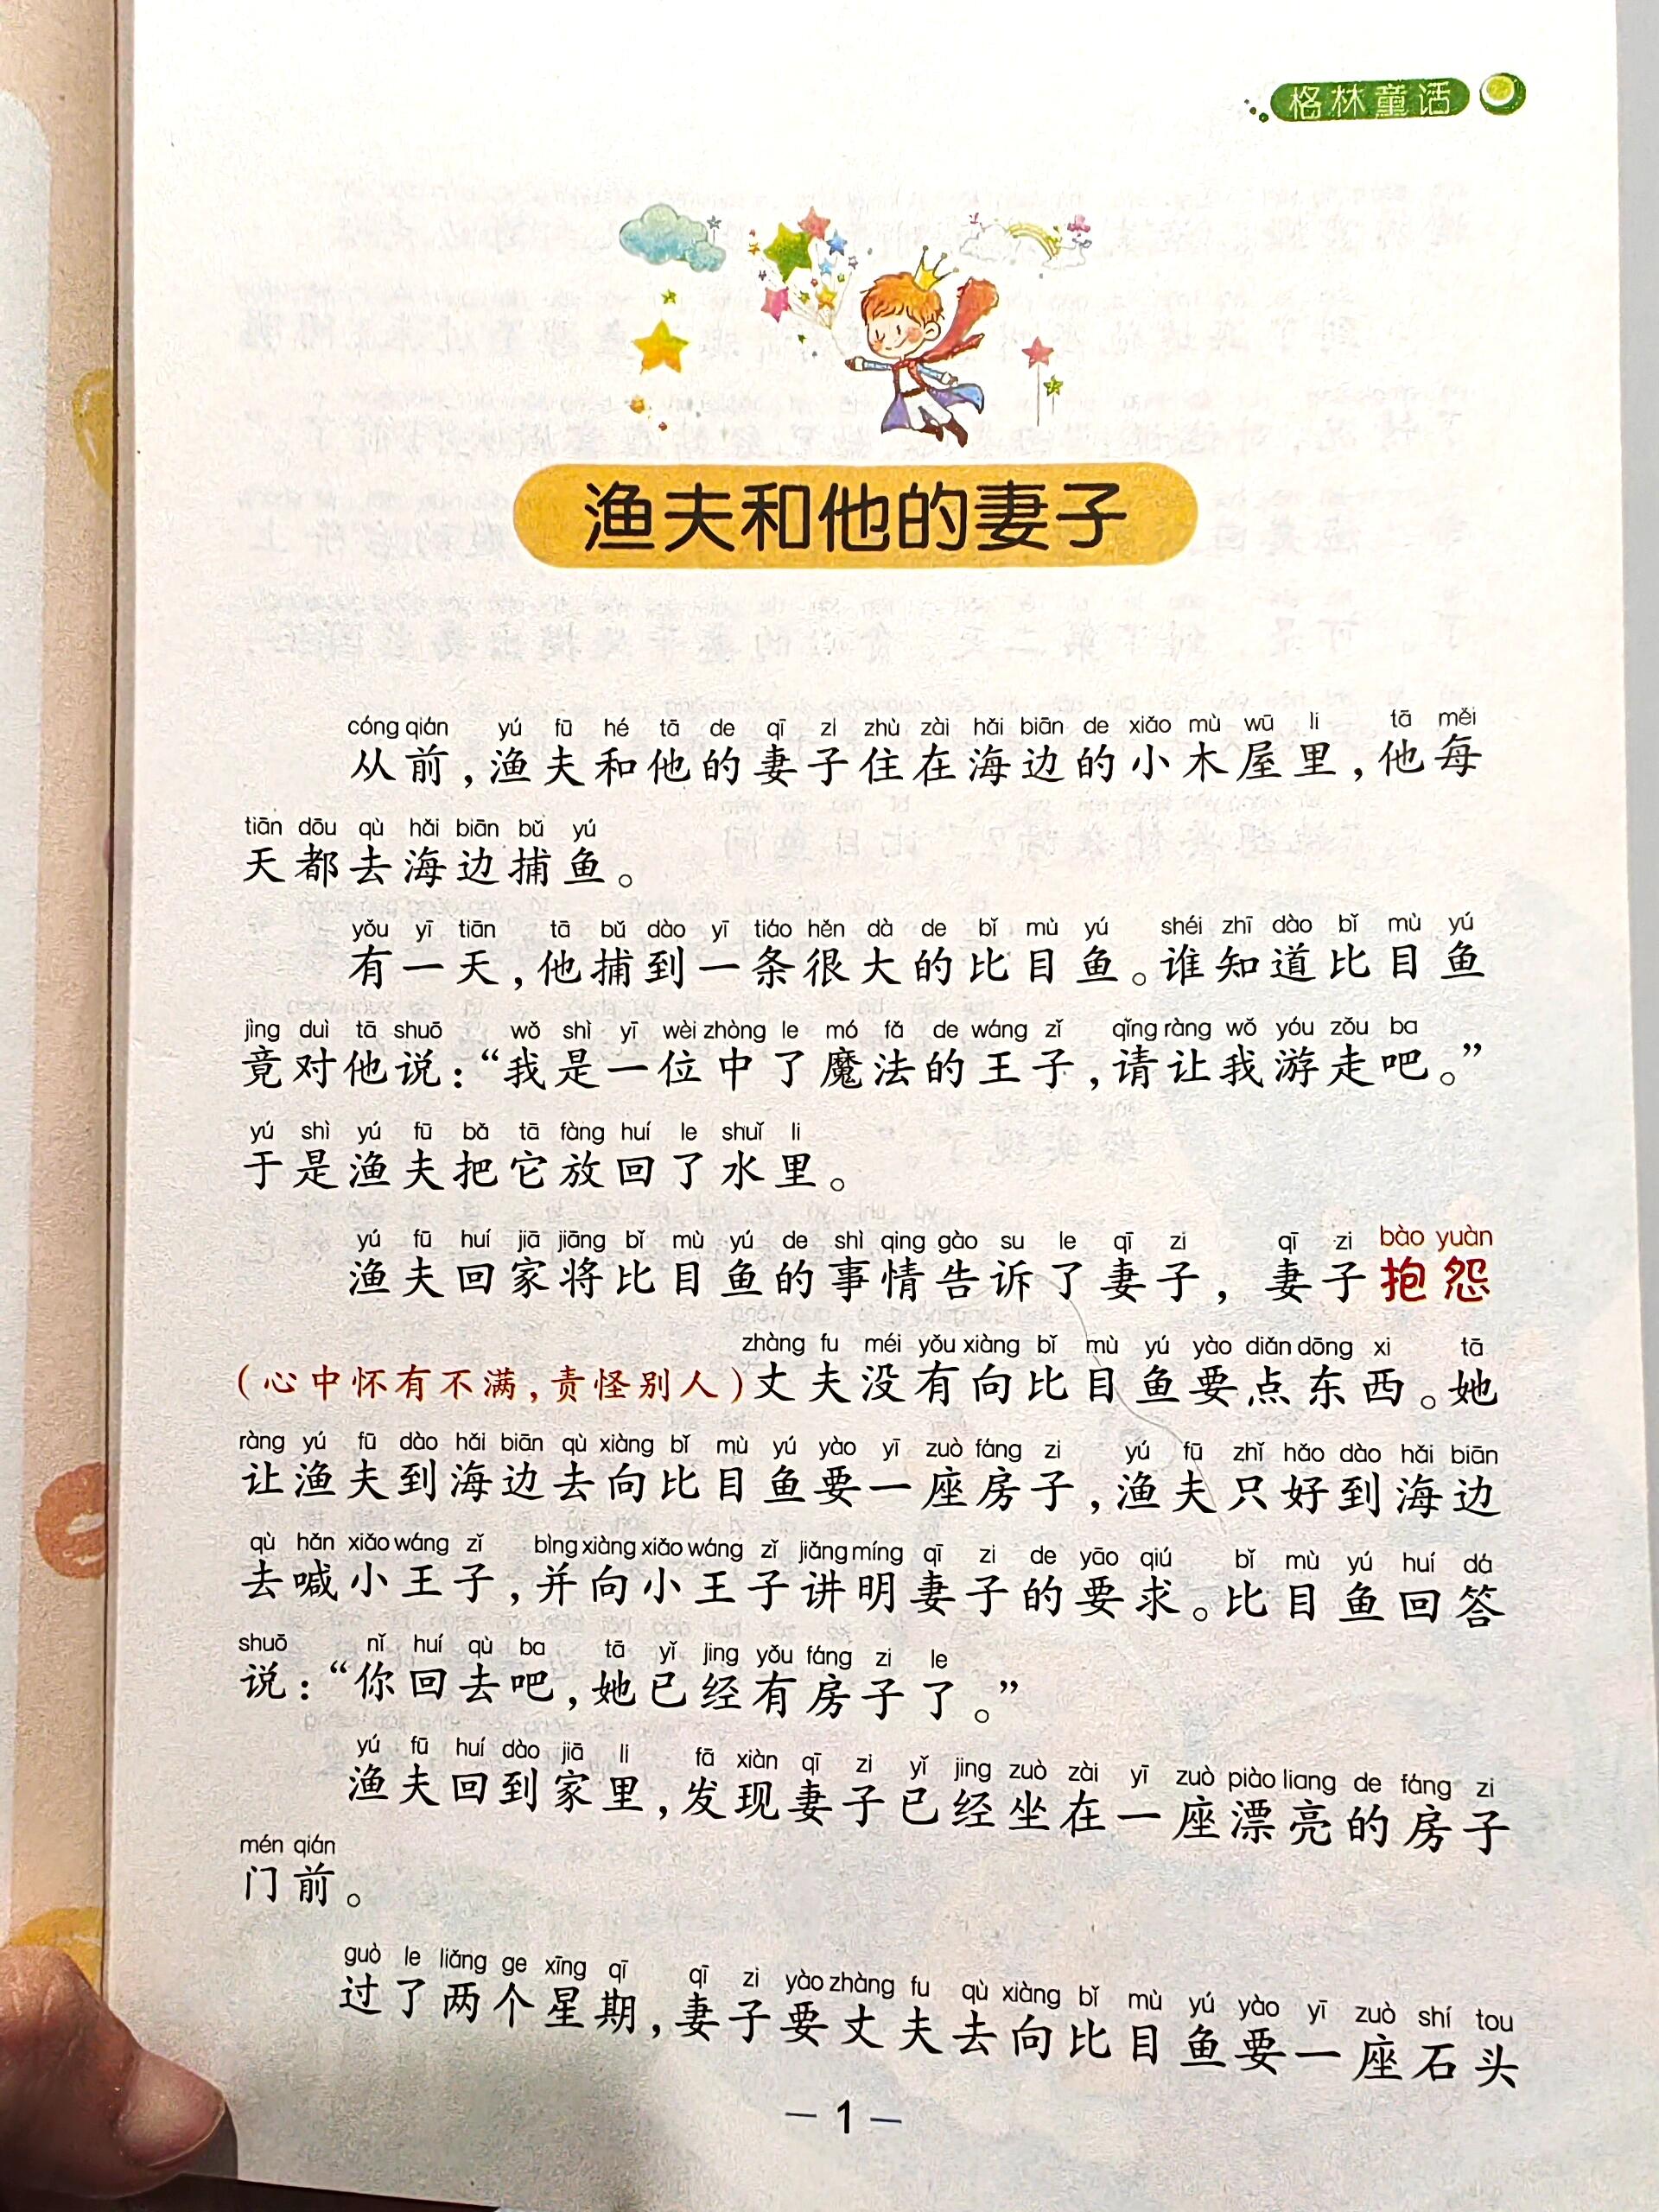 格林童话
渔夫和他的妻子
cóng qián yú fū hé tā de qī zi zhù zài hǎi biān de xiǎo mù wū li tā měi
从前，渔夫和他的妻子住在海边的小木屋里，他每
tiān dōu qù hǎi biān bǔ yú
天都去海边捕鱼。
yǒu yī tiān tā bǔ dào yī tiáo hěn dà de bǐ mù yú shéi zhī dào bǐ mù yú
有一天，他捕到一条很大的比目鱼。谁知道比目鱼
jìng duì tā shuō wǒ shì yī wèi zhòng le mó fǎ de wáng zǐ qǐng ràng wǒ yóu zǒu ba
竟对他说：“我是一位中了魔法的王子，请让我游走吧。”
yú shì yú fū bǎ tā fàng huí le shuǐ li
于是渔夫把它放回了水里。
yú fū huí jiā jiāng bǐ mù yú de shì qing gào su le qī zi qī zi bào yuàn
渔夫回家将比目鱼的事情告诉了妻子，妻子抱怨
zhàng fu méi yǒu xiàng bǐ mù yú yào diǎn dōng xi tā
（心中怀有不满，责怪别人）丈夫没有向比目鱼要点东西。她
ràng yú fū dào hǎi biān qù xiàng bǐ mù yú yào yī zuò fáng zi yú fū zhǐ hǎo dào hǎi biān
让渔夫到海边去向比目鱼要一座房子，渔夫只好到海边
qù hǎn xiǎo wáng zǐ bìng xiàng xiǎo wáng zǐ jiǎng míng qī zi de yāo qiú bǐ mù yú huí dá
去喊小王子，并向小王子讲明妻子的要求。比目鱼回答
shuō nǐ huí qù ba tā yǐ jing yǒu fáng zi le
说：“你回去吧，她已经有房子了。”
yú fū huí dào jiā li fā xiàn qī zi yǐ jing zuò zài yī zuò piào liang de fáng zi
渔夫回到家里，发现妻子已经坐在一座漂亮的房子
mén qián
门前。
guò le liǎng ge xīng qī qī zi yào zhàng fu qù xiàng bǐ mù yú yào yī zuò shí tou
过了两个星期，妻子要丈夫去向比目鱼要一座石头
— 1 —